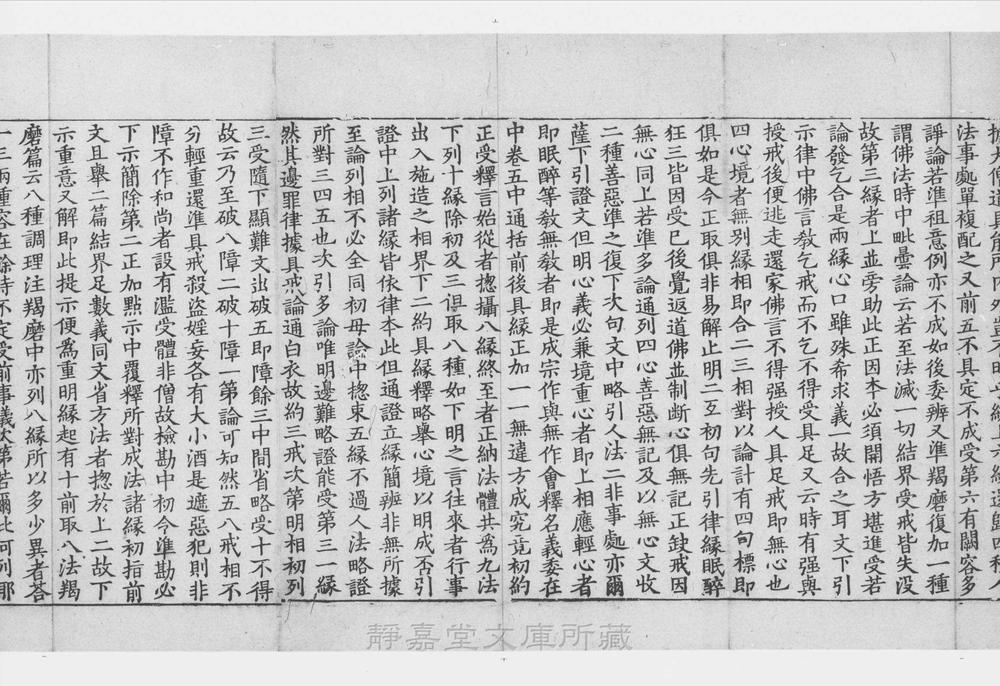 法事處單複配之又前五不具定不成受第六有闕容多
諍論若準祖意例亦不成如後委辨又準羯磨復加一種
謂佛法時中毗曇論云若至法滅一切結界受戒皆失沒
故第三緣者上並旁助此正因本必須開悟方堪進受若
論發乞合是兩緣心口雖殊希求義一故合之耳文下引
示律中佛言教乞戒而不乞不得受具足又云時有強與
授戒後便逃走還家佛言不得强授人具足戒即無心也
四心境者無別緣相即合二三相對以論計有四句標即
俱如是今正取俱非易解止明二互初句先引律緣眠醉
狂三皆因受已後覺返道佛並制斷心俱無記正缺戒因
無心同上若準多論通列四心善惡無記及以無心文收
二種善惡準之復下次句文中略引人法二非事處亦爾
薩下引證文但明心義必兼境重心者即上相應輕心者
即眠醉等教無教者即是成宗作與無作會釋名義委在
中卷五中通括前後具緣正加一一無違方成究竟初約
正受釋言始從者揔攝八緣終至者正納法體共爲九法
下列十緣除初及三但取八種如下明之言往來者行事
出入施造之相界下二約具緣釋略舉心境以明成否引
證中上列諸緣皆依律本此但通證立緣簡辨非無所據
至論列相不必全同初母論中揔束五緣不過人法略證
所對三四五也次引多論唯明邊難略證能受第三一緣
然其邊罪律據具戒論通白衣故約三戒次第明相初列
三受隨下顯難文出破五即障餘三中間省略受十不得
故云乃至破八障二破十障一第論可知然五八戒相不
分輕重還準具戒殺盜婬妄各有大小酒是遮惡犯則非
障不作和尚者設有濫受體非僧故檢勘中初令準勘必
下示簡除第二正加點示中覆釋所對成法諸緣初指前
文且舉二篇結界足數義同文省方法者揔於上二故下
示重意又解即此提示便爲重明緣起有十前取八法羯
磨篇云八種調理注羯磨中亦列八緣所以多少異者答
靜嘉堂文庫所藏